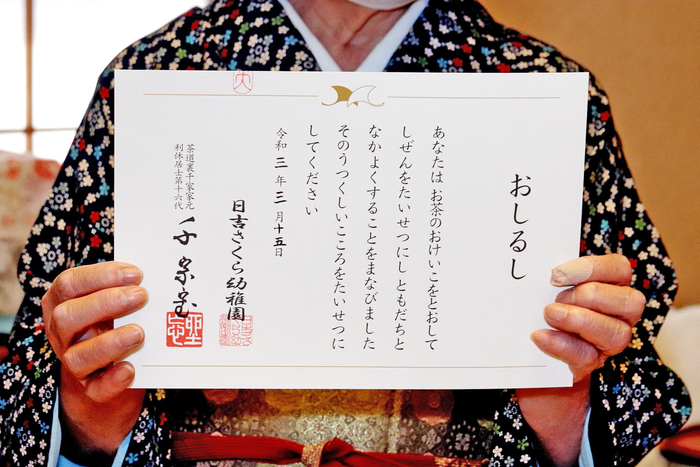 おしるし
あなたは お茶のおけいこをとおして
しぜんをたいせつにし ともだちと
なかよくすることをまなびました
そのうつくしいこころをたいせつに
してください
令和 三 年 三 月 十五 日
日吉さくら幼稚園
茶道裏千家家元
利休居士第十六代
千 宗室